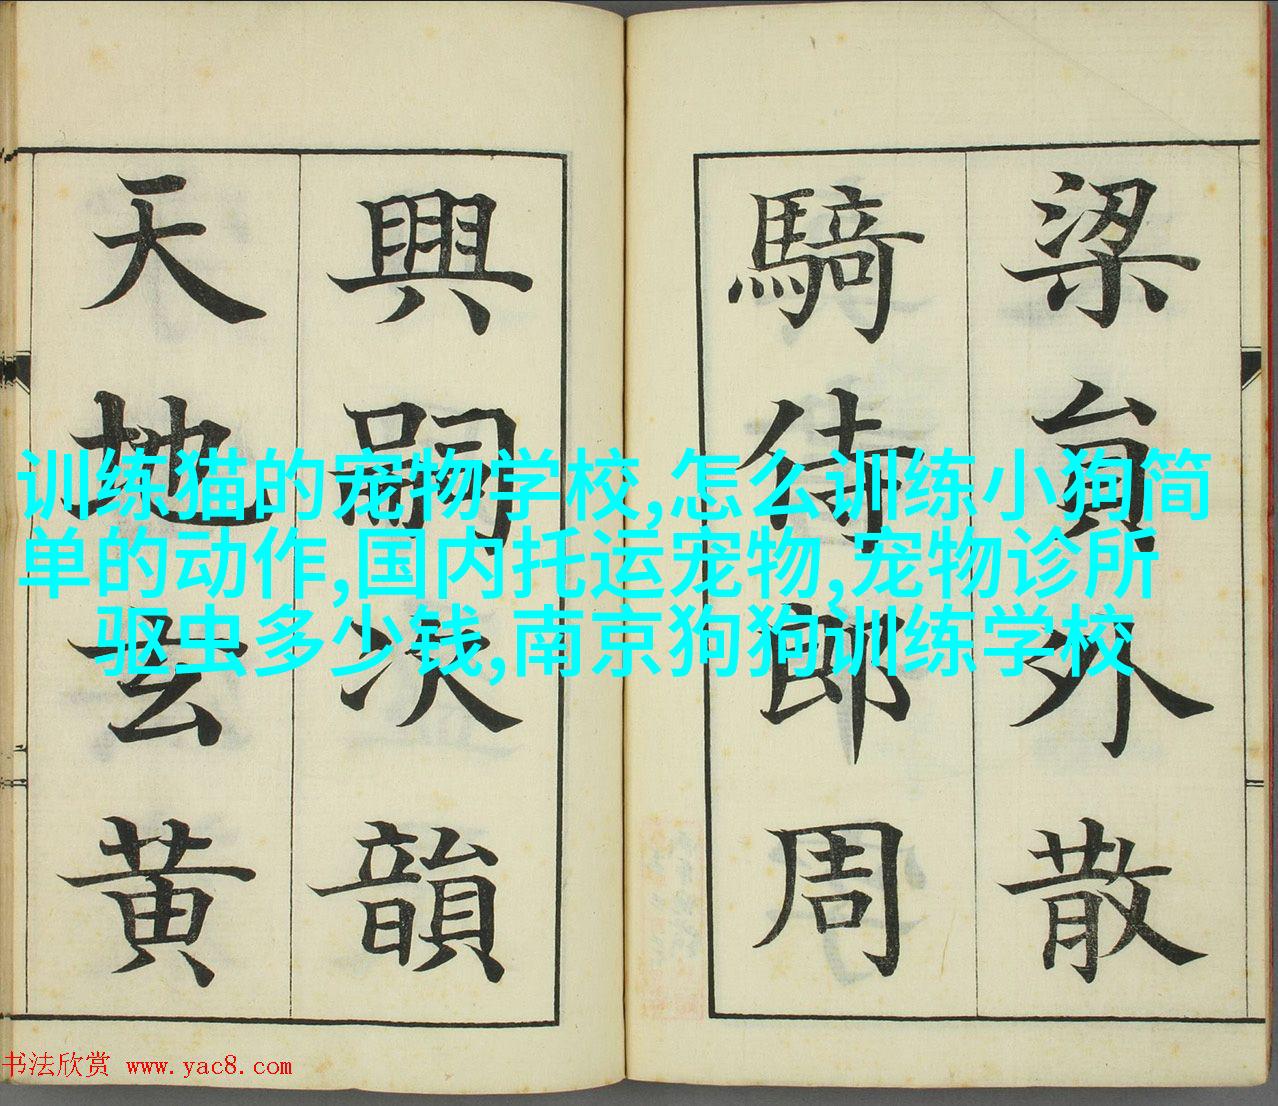 梁員外散
騎侍郎周
興嗣次韻
天地玄黃
训练猫的宠物学校,怎么训练小狗简
单的动作,国内托运宠物,宠物诊所
驱虫多少钱,南京狗狗训练学校
书法欣赏 www.yac8.com